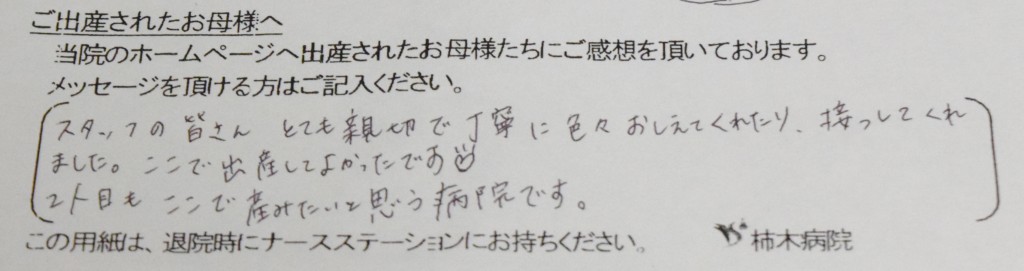 ご出産されたお母様へ
当院のホームページへ出産されたお母様たちにご感想を頂いております。
メッセージを頂ける方はご記入ください。
スタッフの皆さん とても親切で丁寧に色々おしえてくれたり、接っしてくれ
ました。ここで出産してよかったです
2人目もここで産みたいと思う病院です。
この用紙は、退院時にナースステーションにお持ちください。 柿木病院